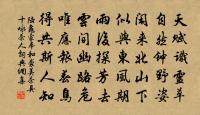 天賦識靈草
自然鍾野姿
閑來北山下
似與東風期
雨後探芳去
雲間幽路危
唯應報春鳥
得共斯人知
陸龜蒙奉和襲美茶具
十咏茶人詞典網集